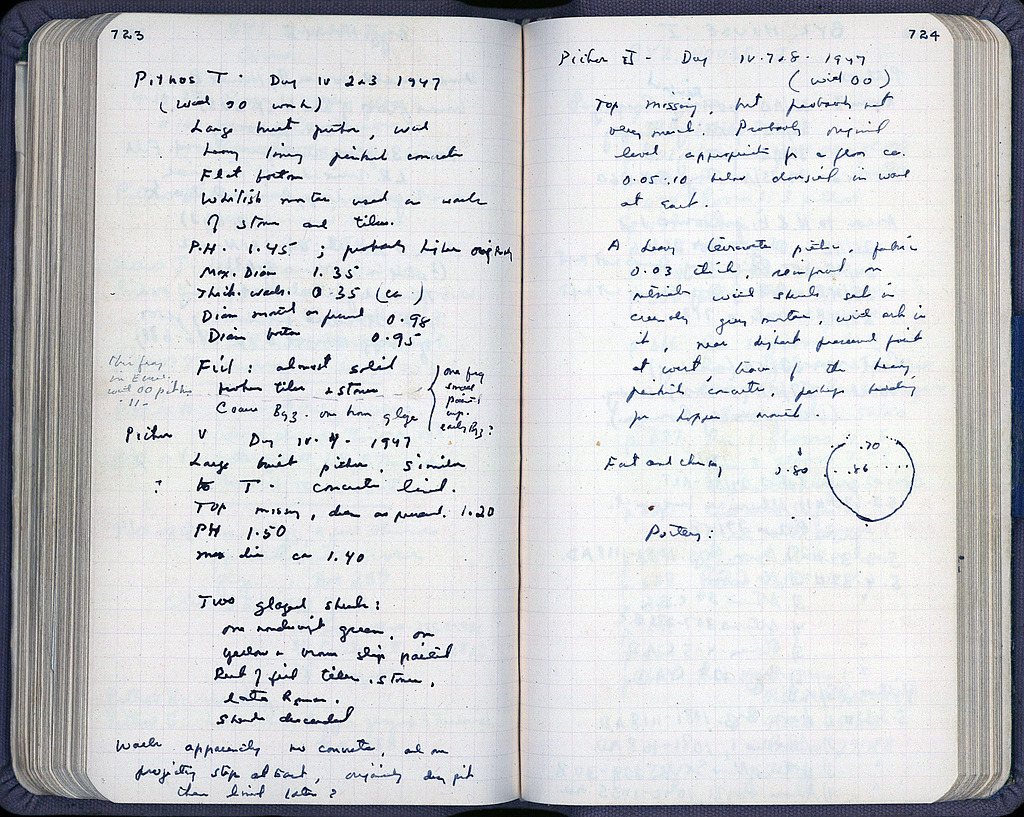 723
Pithos T. Dug IV 2 & 3 1947
(with OO work)
Large built pithos, with
heavy limy pinkish concrete
Flat bottom
Whitish mortar used in walls
of stone and tiles.
P.H. 1.45; probably higher originally
Max. Diam 1.35
Thick. walls. 0.35 (ca)
Diam mouth as preserved 0.98
Diam bottom 0.95
Fill: almost solid
broken tiles & stones
Coarse Byz. one brown glaze
one frg
small
painted
cup.
early Byz?
this frag
in Envel.
with OO pithos
-11-
Pithos V Dug IV. 4. 1947
Large built pithos, similar
? to T. concrete lined.
Top missing, diam as preserved. 1.20
PH 1.50
max dia ca 1.40
Two glazed sherds:
one nondescript green, one
yellow & brown slip painted
Rest of fill tiles, stones,
late Roman.
sherds discarded
Walls apparently no concrete,
projecting step at East, originally dug pit
then lined later?
724
Pithos II - Dug IV. 7 & 8. 1947
(with OO)
Top missing, but probably not
very much. Probably original
level appropriate for a floor ca.
0.05-.10 below in wall
at East.
A heavy terracotta pithos, fabric
0.03 thick, reinforced on
outside with sherds set in
crumbly grey mortar, with ash in
it, near highest preserved point
at west traces of the heavy
pinkish concrete, perhaps
for mouth.
0.80
.70
.86
Pottery: